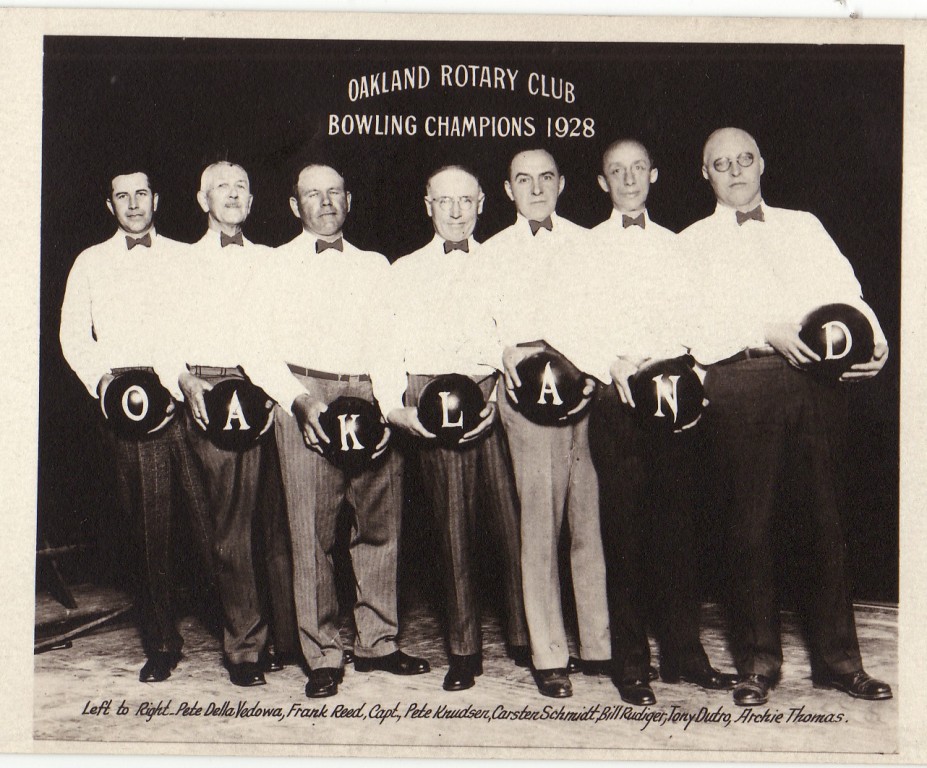 OAKLAND ROTARY CLUB
BOWLING CHAMPIONS 1928
O A K L A N D
Left to Right_Pete Della Vedowa, Frank Reed, Capt, Pete Knudsen, Carsten Schmidt, Bill Rudiger, Tony Dutro, Archie Thomas.